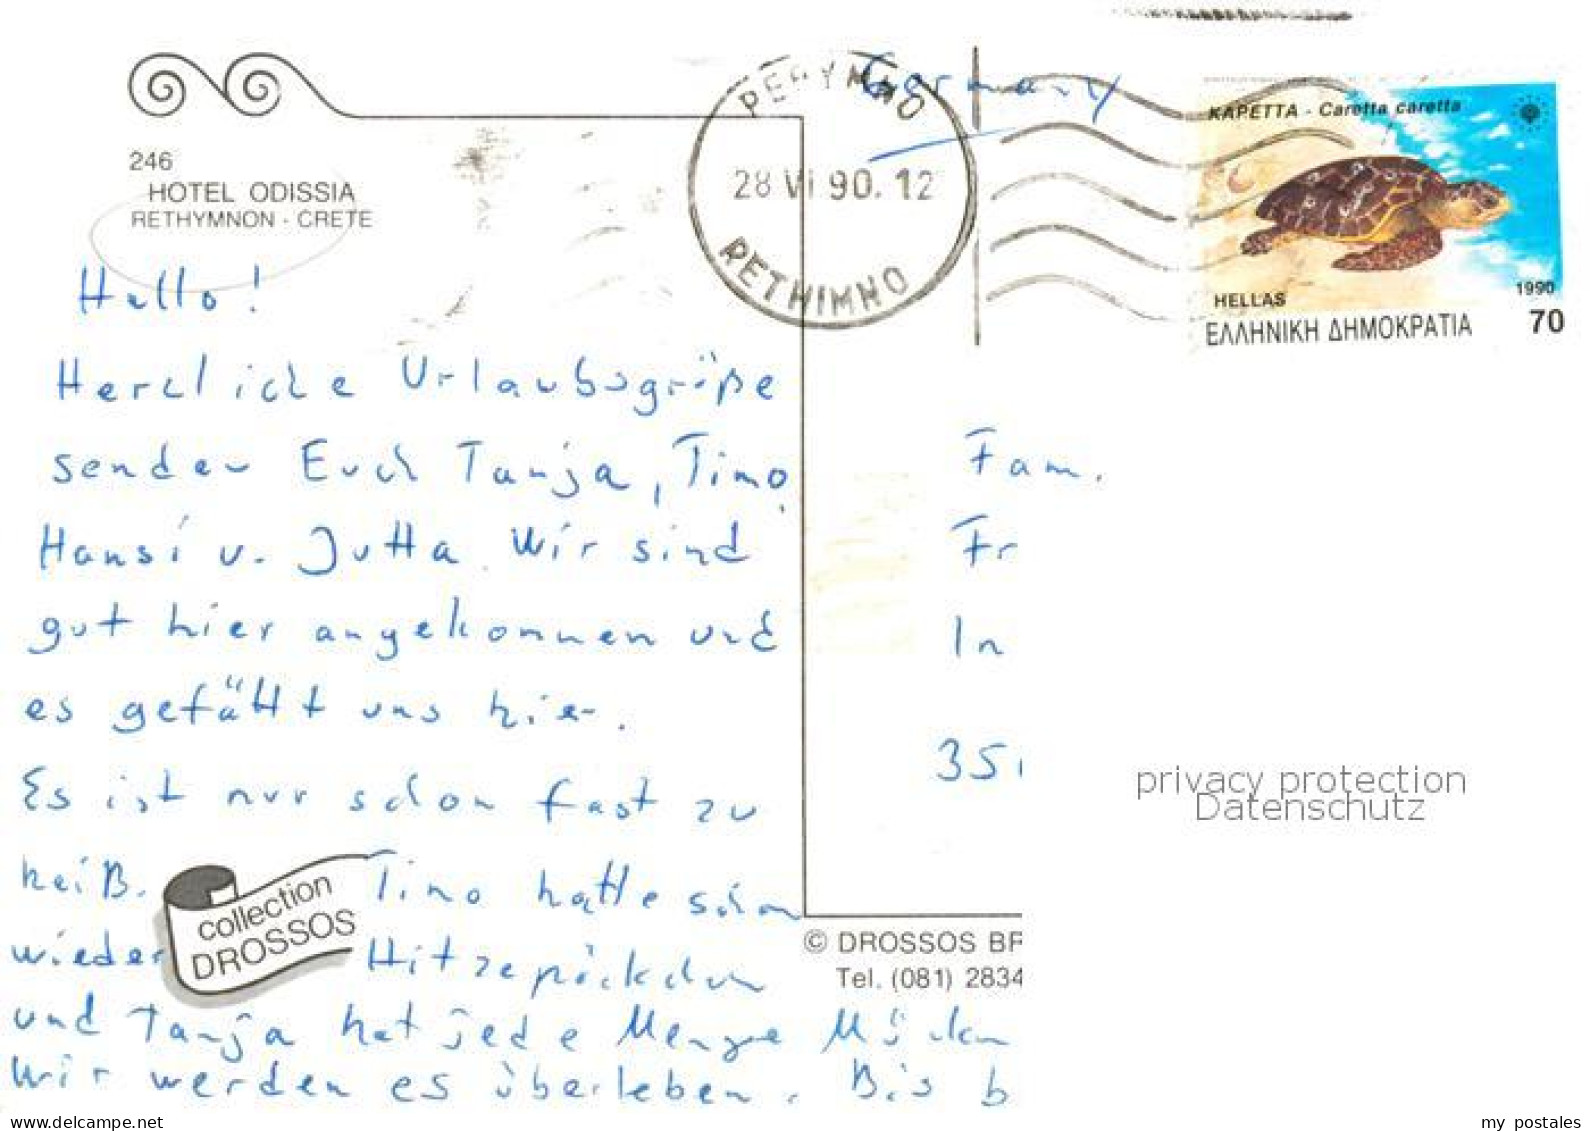 Germany
ΡΕΘΥΜΝΟ
28 VI 90. 12
RETHIMNO
ΚΑΡΕΤΤΑ - Caretta caretta
HELLAS
1990
ΕΛΛΗΝΙΚΗ ΔΗΜΟΚΡΑΤΙΑ
70
246
HOTEL ODISSIA
RETHYMNON - CRETE
Hallo!
Herzliche Urlaubsgrüße
senden Euch Tanja, Timo,
Hansi u. Jutta. Wir sind
gut hier angekommen und
es gefällt uns hier.
Es ist nur schon fast zu
heiß. Timo hatte schon
wieder Hitzepöckchen
und Tanja hat jede Menge Mücken
Wir werden es überleben. Bis b
collection
DROSSOS
Fam.
Fr
In
35
© DROSSOS BR
Tel. (081) 2834
privacy protection
Datenschutz
my postales